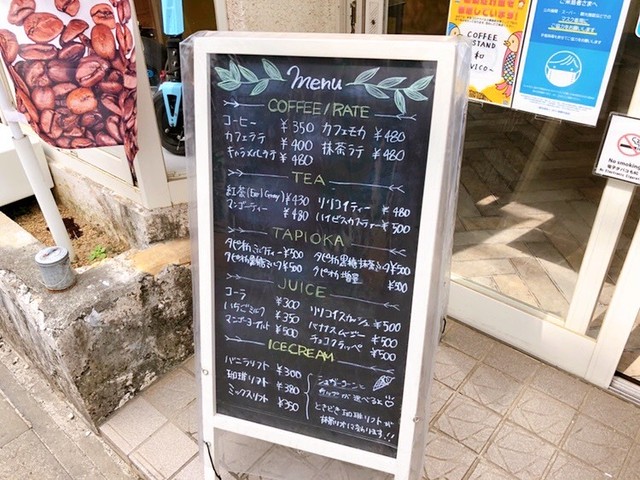 Menu
COFFEE/RATE
コーヒー ¥350 カフェモカ ¥480
カフェラテ ¥400 抹茶ラテ ¥480
キャラメルラテ ¥480
TEA
紅茶(Earl Grey) ¥430 リリコイティー ¥480
マンゴーティー ¥480 ハイビスカスティー ¥500
TAPIOKA
タピオカミルクティー ¥500 タピオカ黒糖抹茶ミルク ¥500
タピオカ黒糖ミルク ¥500 タピオカ増量
JUICE
コーラ ¥300 リリコイスカッシュ ¥500
いちごミルク ¥350 バナナスムージー ¥500
マンゴーヨーグルト ¥500 チョコフラッペ ¥500
ICECREAM
バニラソフト ¥300
珈琲ソフト ¥380
ミックスソフト ¥350
シュガーコーンと
カップが選べるよ
ときどき珈琲ソフトが
抹茶ソフトになります!!
COFFEE
STAND
No smoking